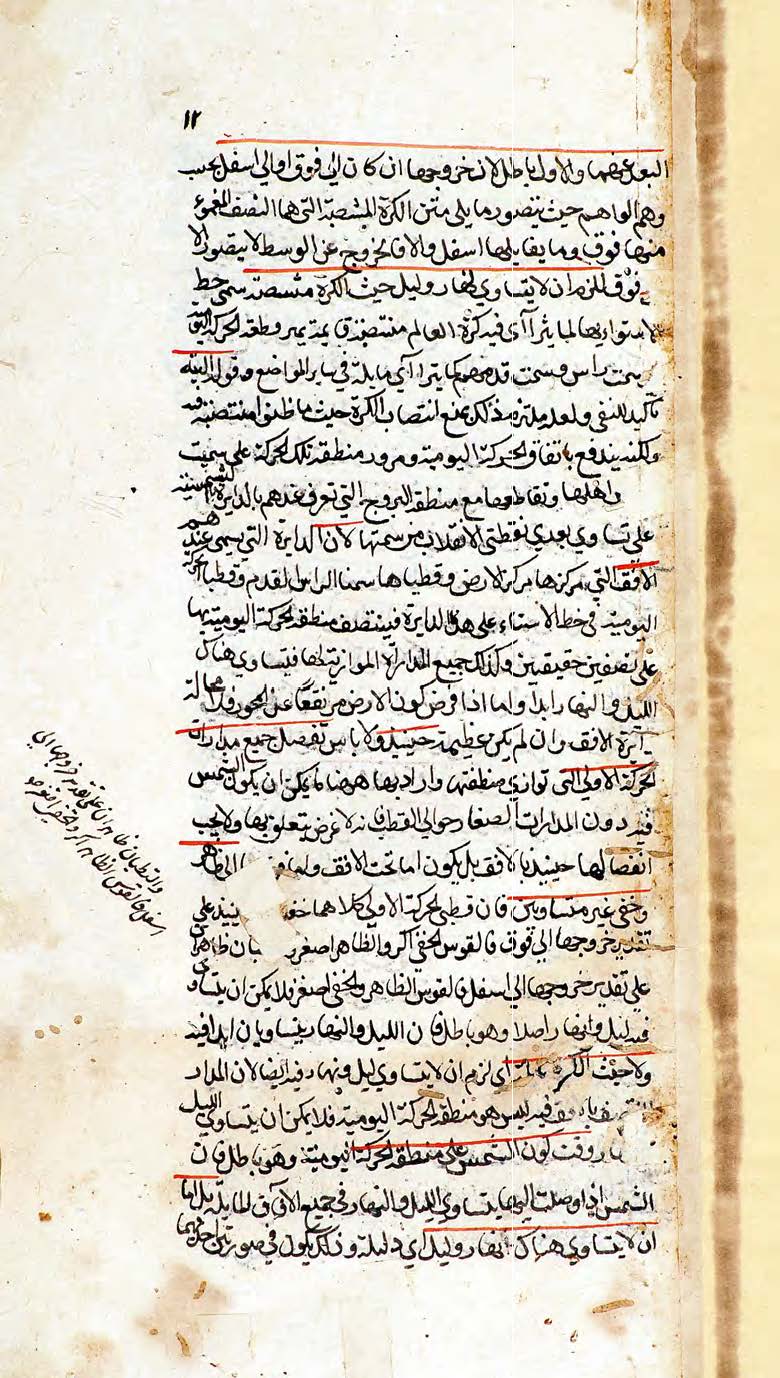 ١٢
البعد عنهما والاول باطل لان خروجها ان كان الى فوق او الى اسفل بحسب
وهم الواهم حيث يتصور ما يلي متن الكرة المنتصبة التي هما النصف
منها فوق وما يقابلها اسفل والا فالخروج عن الوسط لا يتصور الا
فوق للزم ان لا يتساوي نهار وليل حيث الكرة منتصبة سمي خط
الاستواء بها لما يترااى فيه كرة العالم منتصبة قايمة يمر منطقة الحركة اليومية
بسمت راس وسمت قدمهم كما يتراآي مايلة في ساير المواضع وقوله البتة
تاكيد للنفي ولعله يمنع انتصاب الكرة حيث ما ظنوا منتصبة فيه
ولكنه يندفع باتفاق الحركة اليومية ومرور منطقة تلك الحركة على سميت
واهلها وتقاطعها مع منطقة البروج التي تعرف عندهم بالدايرة الشمسية
على تساوي بعدي نقطتي الانقلاب من سمتها لان الدايرة التي يسمى عندهم
الافق التي مركزها مركز الارض وقطباها سمتا الراس والقدم وقطبا الحركة
اليومية في خط الاستواء على هذه الدايرة فينتصف منطقة الحركة اليومية بها
على نصفين حقيقيين وكذلك جميع المدارات الموازية لها فيتساوي هناك
الليل والنهار ابدا واما اذا فرض كون الارض مرتفعًا عن المحور فلا محالة
دايرة الافق وان لم يكن عظيمة حينيذ ولا باس تفصل جميع مدارات
الحركة الاولى التي توازي منطقتها واراد بها ههنا ما يمكن ان يكون الشمس
فيه دون المدارات الصغار حوالي القطب فانه لا غرض يتعلق بها ولا يجب
انفصالها حينيذ بالافق بل يكون اما تحت الافق واما فوق الى ظاهر
وخفي غير متساويين فان قطبي الحركة الاولى كلاهما حينيذ على
تقدير خروجها الى فوق فالقوس الخفي اكبر والظاهر اصغر ظاهران
على تقدير خروجها الى اسفل فالقوس الظاهر والخفي اصغر فلا يمكن ان يتساوى
فيه ليل ونهار اصلا وهو باطل فان الليل والنهار يتساويان ابدا فيه
ولا حيث الكرة مايلة اي لزم ان لا يتساوي ليل ونهار فيه ايضا لان المدار
المنتصف بالافق فيه ليس هو منطقة الحركة اليومية فلا يمكن ان يتساوى الليل
وقت كون الشمس على منطقة الحركة اليومية وهو باطل فان
الشمس اذا وصلت اليها يتساوي الليل والنهار في جميع الافاق المايلة بل اما
ان لا يتساوي هناك نهار وليل اي دليلة وذلك يكون في صورتين احدهما
والقطبان ظاهران على تقدير خروجها الى
اسفل فالقوس الظاهر اكبر والخفي اصغر